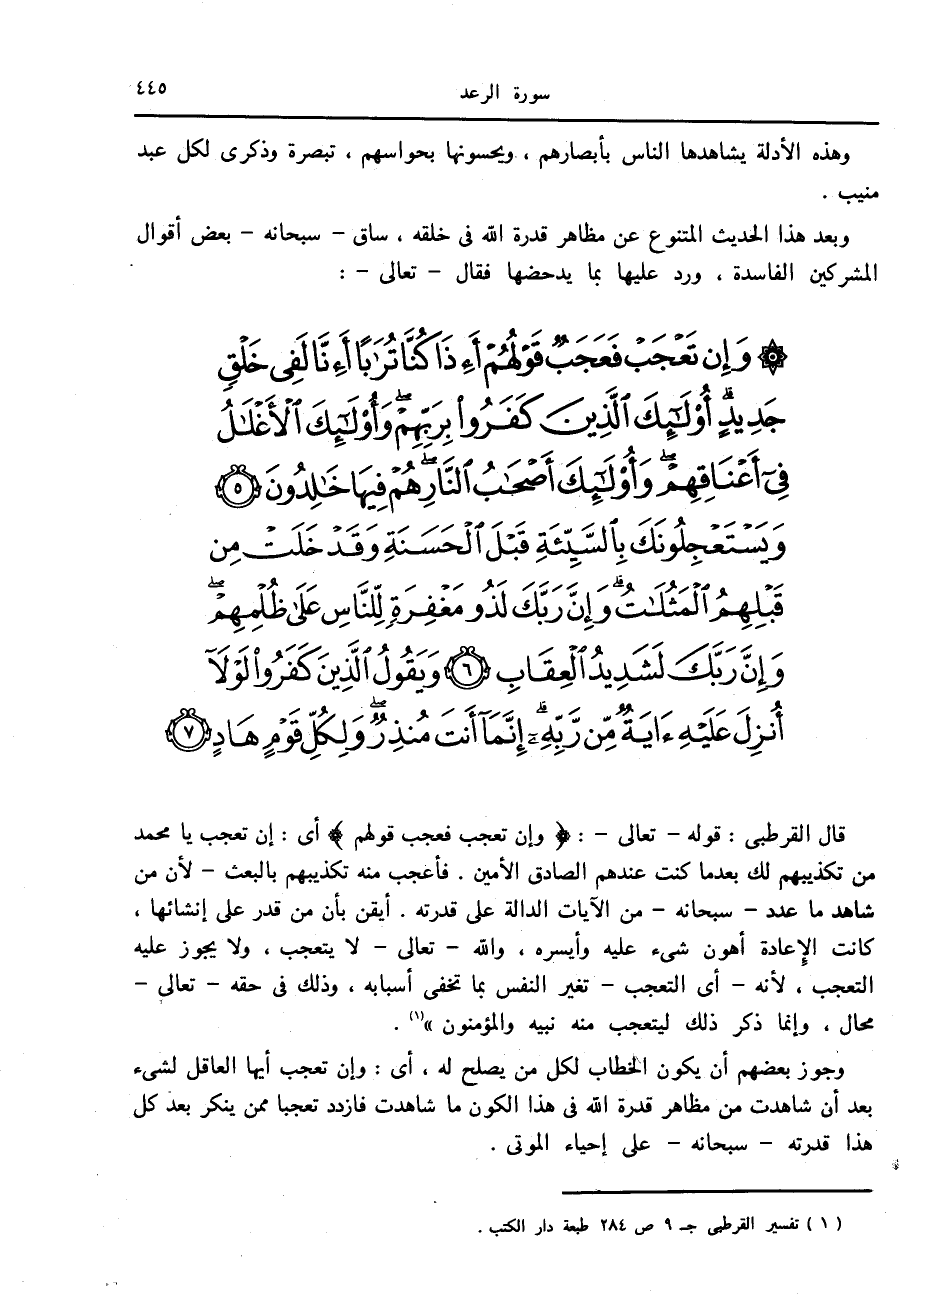 سورة الرعد ٤٤٥
وهذه الأدلة يشاهدها الناس بأبصارهم ، ويحسونها بحواسهم ، تبصرة وذكرى لكل عبد
منيب .
وبعد هذا الحديث المتنوع عن مظاهر قدرة الله فى خلقه ، ساق – سبحانه – بعض أقوال
المشركين الفاسدة ، ورد عليها بما يدحضها فقال – تعالى – :
۞ وَإِن تَعۡجَبۡ فَعَجَبٞ قَوۡلُهُمۡ أَءِذَا كُنَّا تُرَٰبًا أَءِنَّا لَفِي خَلۡقٖ
جَدِيدٍۗ أُوْلَٰٓئِكَ ٱلَّذِينَ كَفَرُواْ بِرَبِّهِمۡۖ وَأُوْلَٰٓئِكَ ٱلۡأَغۡلَٰلُ
فِيٓ أَعۡنَاقِهِمۡۖ وَأُوْلَٰٓئِكَ أَصۡحَٰبُ ٱلنَّارِۖ هُمۡ فِيهَا خَٰلِدُونَ ٥
وَيَسۡتَعۡجِلُونَكَ بِٱلسَّيِّئَةِ قَبۡلَ ٱلۡحَسَنَةِ وَقَدۡ خَلَتۡ مِن
قَبۡلِهِمُ ٱلۡمَثُلَٰتُۗ وَإِنَّ رَبَّكَ لَذُو مَغۡفِرَةٖ لِّلنَّاسِ عَلَىٰ ظُلۡمِهِمۡۖ
وَإِنَّ رَبَّكَ لَشَدِيدُ ٱلۡعِقَابِ ٦ وَيَقُولُ ٱلَّذِينَ كَفَرُواْ لَوۡلَآ
أُنزِلَ عَلَيۡهِ ءَايَةٞ مِّن رَّبِّهِۦٓۗ إِنَّمَآ أَنتَ مُنذِرٞۖ وَلِكُلِّ قَوۡمٍ هَادٍ ٧
قال القرطبى : قوله – تعالى – : ﴿ وإن تعجب فعجب قولهم ﴾ أى : إن تعجب يا محمد
من تكذيبهم لك بعدما كنت عندهم الصادق الأمين . فأعجب منه تكذيبهم بالبعث – لأن من
شاهد ما عدد – سبحانه – من الآيات الدالة على قدرته . أيقن بأن من قدر على إنشائها ،
كانت الإعادة أهون شىء عليه وأيسره ، والله – تعالى – لا يتعجب ، ولا يجوز عليه
التعجب ، لأنه – أى التعجب – تغير النفس بما تخفى أسبابه ، وذلك فى حقه – تعالى –
محال ، وإنما ذكر ذلك ليتعجب منه نبيه والمؤمنون »(١) .
وجوز بعضهم أن يكون الخطاب لكل من يصلح له ، أى : وإن تعجب أيها العاقل لشىء
بعد أن شاهدت من مظاهر قدرة الله فى هذا الكون ما شاهدت فازدد تعجبا ممن ينكر بعد كل
هذا قدرته – سبحانه – على إحياء الموتى .
( ١ ) تفسير القرطبى جـ ٩ ص ٢٨٤ طبعة دار الكتب .